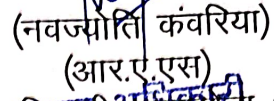 (नवज्योति कंवरिया)
(आर.ए.एस)